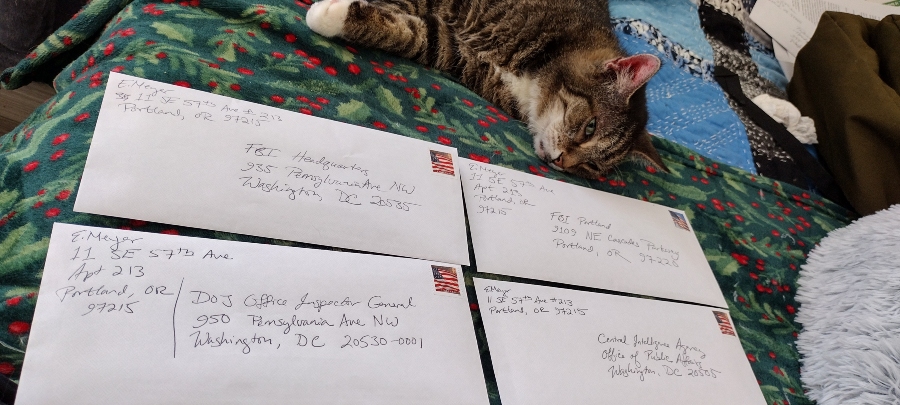 E. Meyer
11 SE 57th Ave # 213
Portland, OR 97215
FBI Headquarters
935 Pennsylvania Ave NW
Washington, DC 20535
E. Meyer
11 SE 57th Ave
Apt 213
Portland, OR
97215
FBI Portland
9109 NE Cascades Parkway
Portland, OR 97220
E. Meyer
11 SE 57th Ave.
Apt 213
Portland, OR
97215
DOJ Office Inspector General
950 Pennsylvania Ave NW
Washington, DC 20530-0001
E Meyer
11 SE 57th Ave #213
Portland, OR 97215
Central Intelligence Agency
Office of Public Affairs
Washington, DC 20505